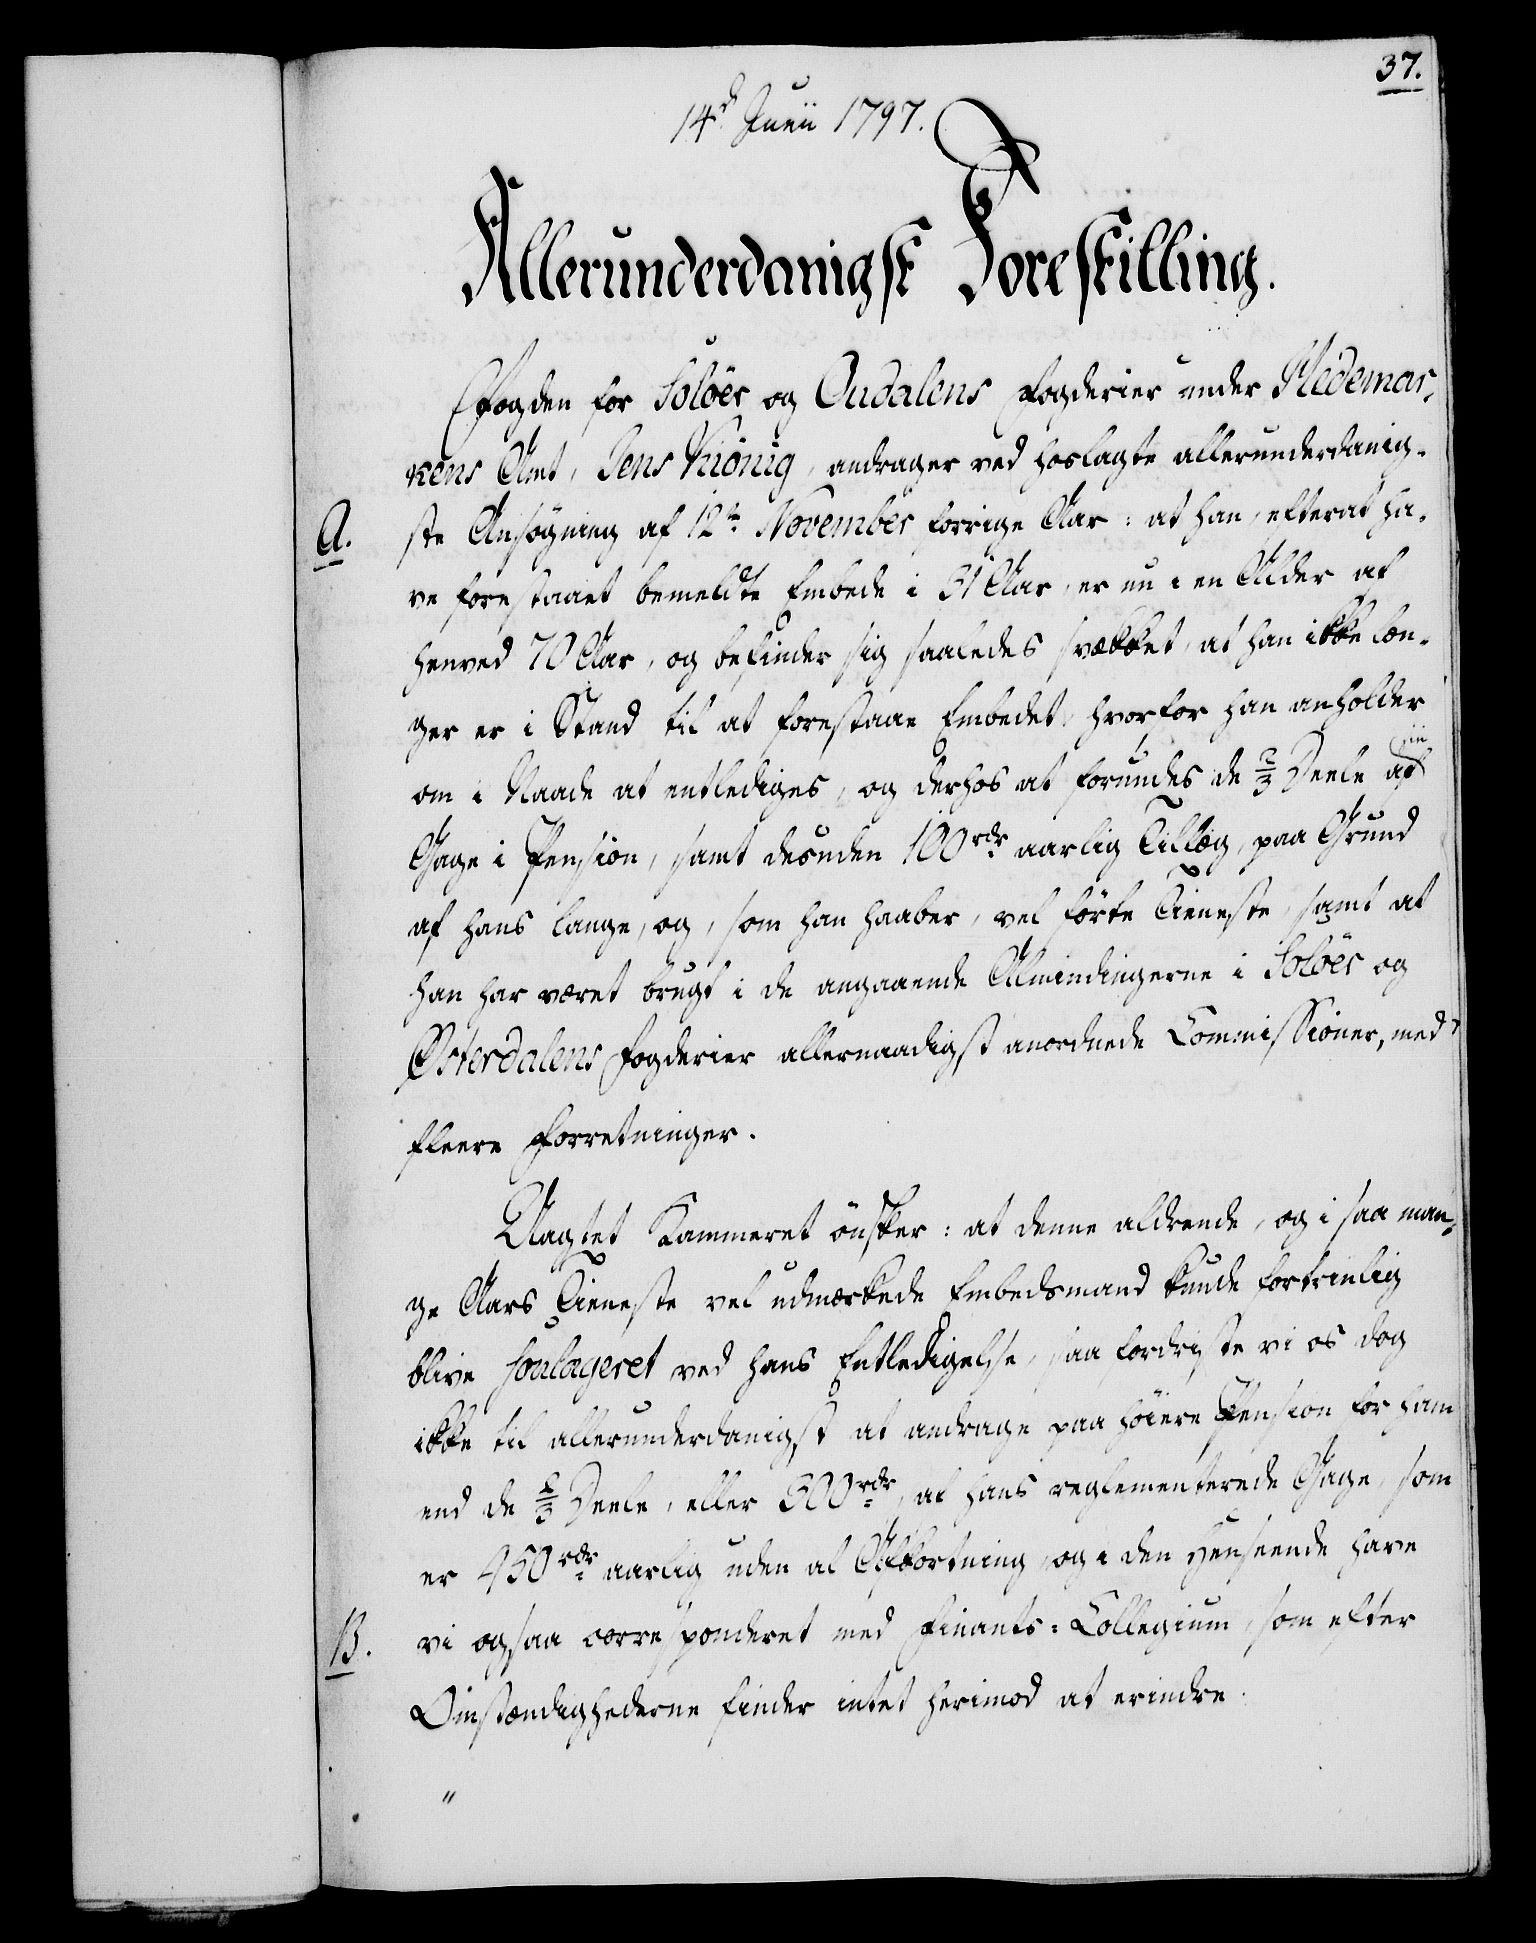 37.
14d Junii 1797.
Allerunderdanigst Forestilling.
Fogden for Solöer og Oudalens Fogderier under Hedemar-
kens Amt, Jens Kiönig, andrager ved hoslagte allerunderdanig-
A.
ste Ansögning af 12te November forrige Aar: at han, efterat ha-
ve forestaaet bemeldte Embede i 31 Aar, er nu i en Alder af
henved 70 Aar, og befinder sig saaledes svækket, at han ikke læn-
ger er i Stand til at forestaae Embedet, hvorfor han anholder
om i Naade at entlediges, og derhos at forundes de 2/3 Deele af sin
Gage i Pension, samt desuden 100 rdr aarlig Tillæg, paa Grund
af hans lange, og, som han haaber, vel förte Tieneste, samt at
han har været brugt i de angaaende Almindingerne i Solöer og
Østerdalens Fogderier allernaadigst anordnede Commissioner, med
fleere Forretninger.
Uagtet Kammeret önsker: at denne aldrende, og i saa man-
ge Aars Tieneste vel udmærkede Embedsmand kunde fortrinlig
blive soulageret ved hans Entledigelse, saa fordriste vi os dog
ikke til allerunderdanigst at andrage paa höiere Pension for ham
end de 2/3 Deele, eller 300 rdr, af hans reglementerede Gage, som
er 450 rdr aarlig uden al Afkortning, og i den Henseende have
B.
vi ogsaa correspondered med Finants-Collegium, som efter
Omstændighederne finder intet herimod at erindre.
"